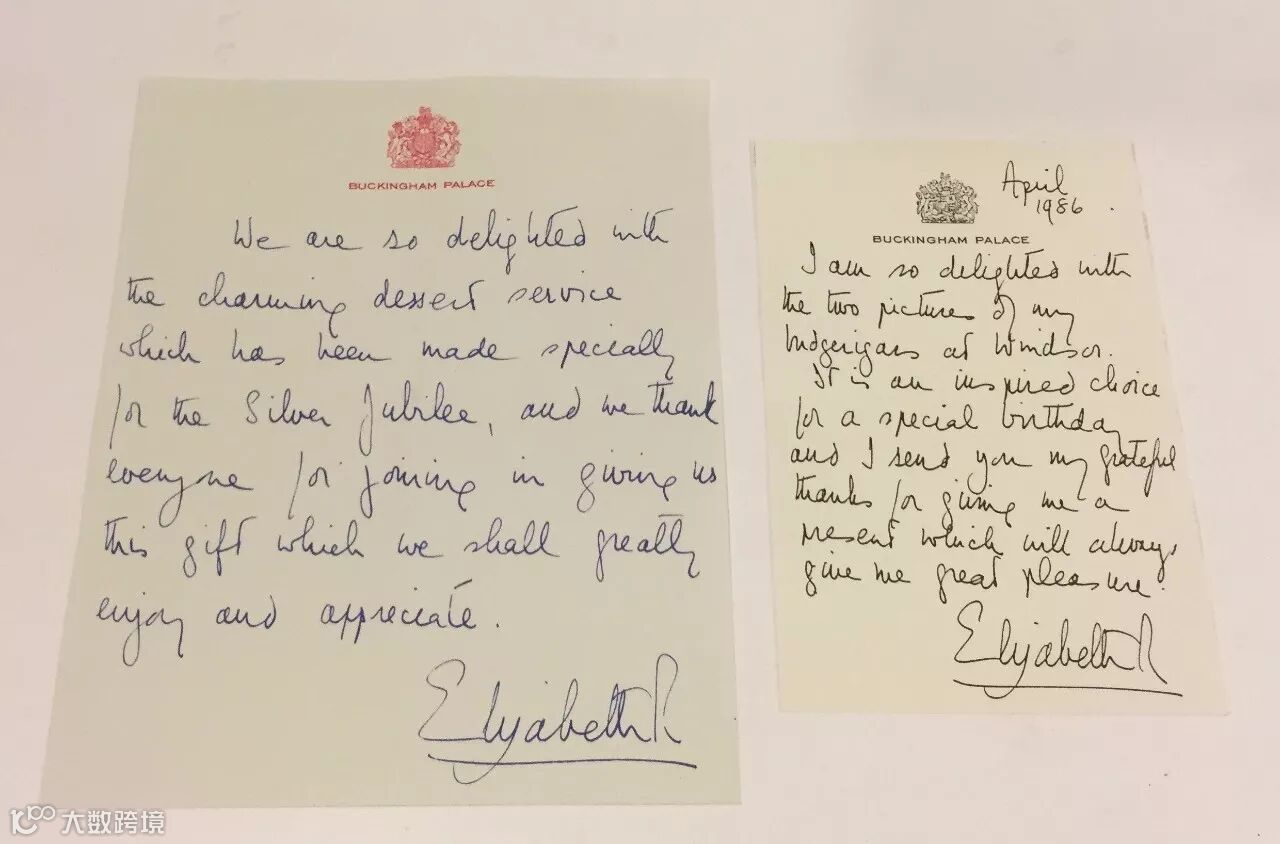 BUCKINGHAM PALACE
We are so delighted with
the charming dessert service
which has been made specially
for the Silver Jubilee, and we thank
everyone for joining in giving us
this gift which we shall greatly
enjoy and appreciate.
Elizabeth R
April
1986.
BUCKINGHAM PALACE
I am so delighted with
the two pictures of my
budgerigars at Windsor.
It is an inspired choice
for a special birthday
and I send you my grateful
thanks for giving me a
present which will always
give me great pleasure.
Elizabeth R
大数跨境